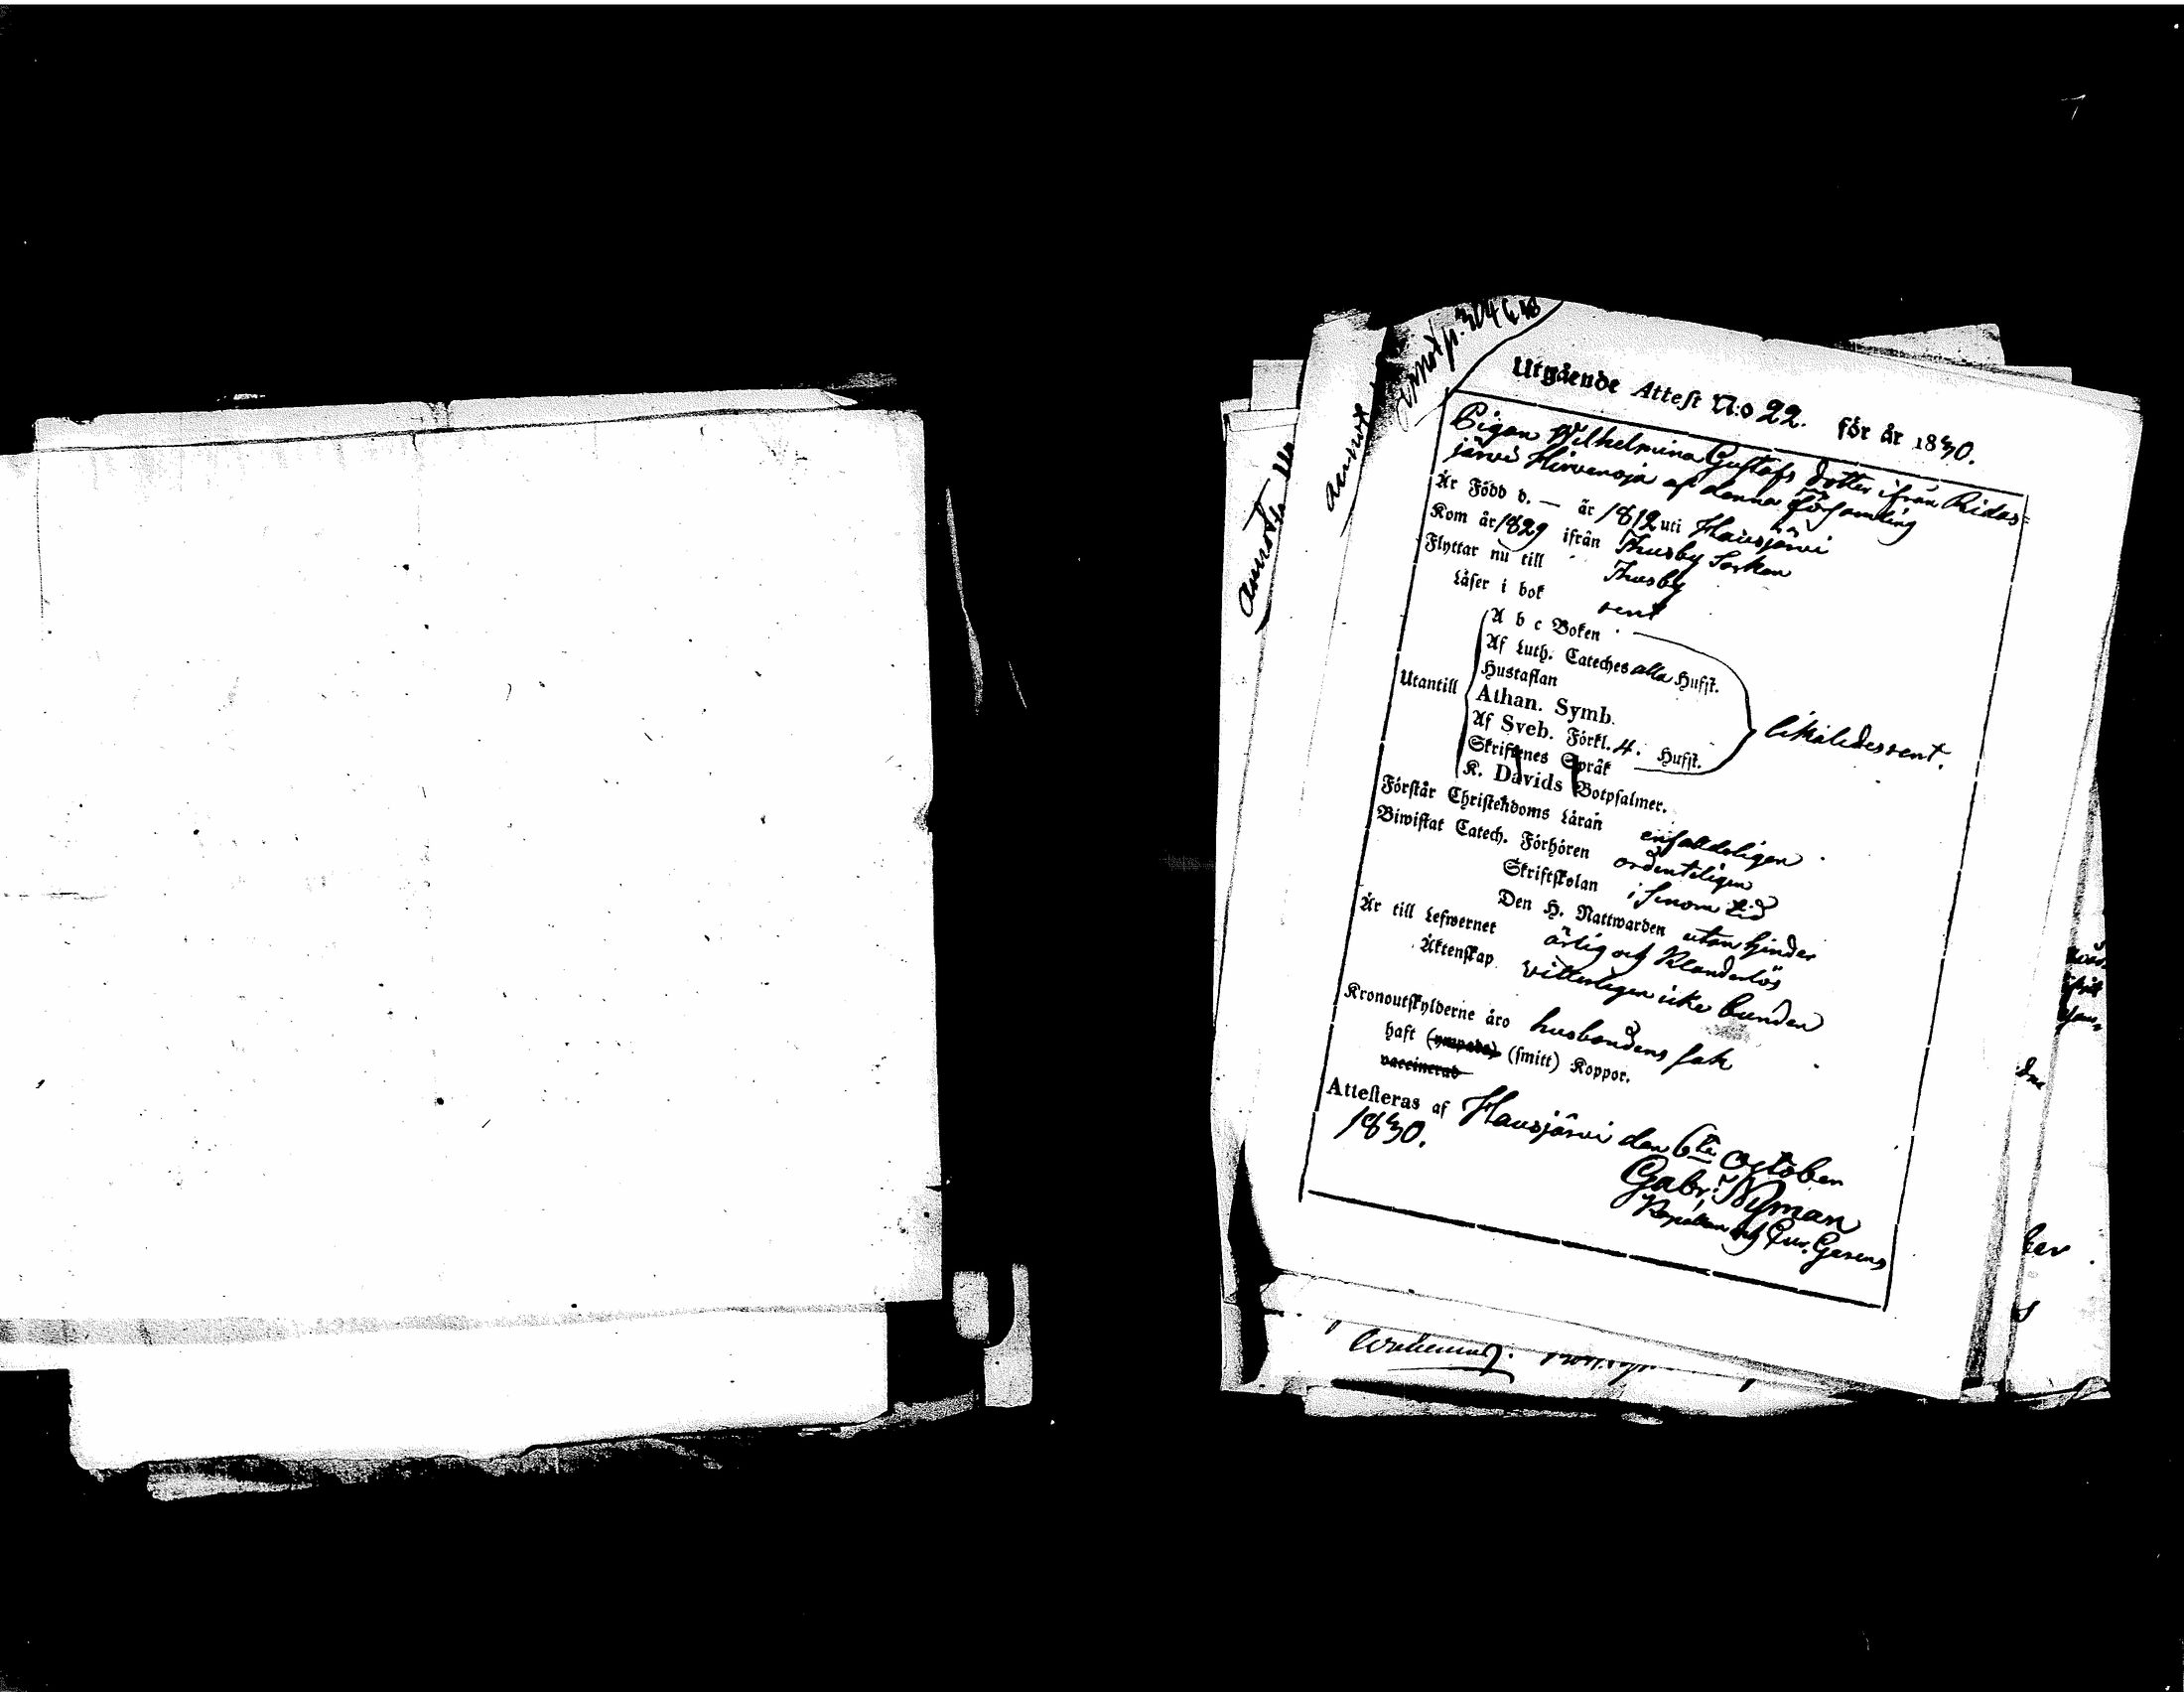 Utgående Attest N:o 22. för år 1830.
Pigan Wilhelmina Gustafs dotter ifrån Ridas=
järvi Hirvenoja af denna Församling
Är Född d. — år 1812 uti Hausjärvi
Kom år 1829 ifrån Thusby Sockan
Flyttar nu till Thusby
Läser i bok rent
Utantill
A b c Boken
Af Luth. Cateches alla Hufst.
Hustaflan
Athan. Symb.
Af Sveb. Förkl. 4. Hufst.
Skriftenes Språk
K. Davids Botpsalmer.
likaledes rent.
Förstår Christendoms Läran enfalldeligen
Biwistat Catech. Förhören ordenteligen
Skriftskolan i Sinom tid
Den H. Nattwarden utan hinder
Är till Lefwernet ärlig och klanderlös
Äktenskap vitterligen icke bunden
Kronoutskylderne äro husbondens sak
haft (ympade) (smitt) Koppor.
vaccinerad
Attesteras af Hausjärvi den 6te October
1830.
Gabr. Nyman
Kapellan och Cur. Gerens
annot